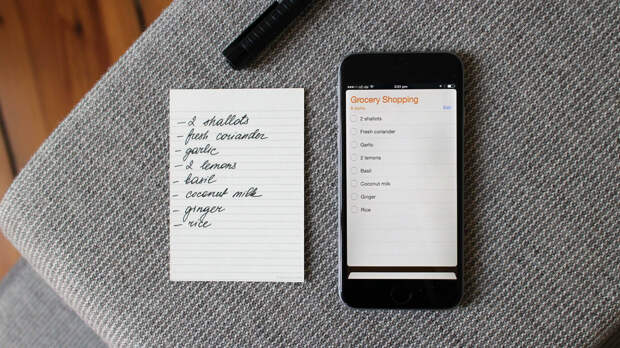 - 2 shallots
- fresh coriander
- garlic
- 2 lemons
- basil
- coconut milk
- ginger
- rice
3:51 pm
Grocery Shopping
8 items Edit
2 shallots
Fresh coriander
Garlic
2 lemons
Basil
Coconut milk
Ginger
Rice